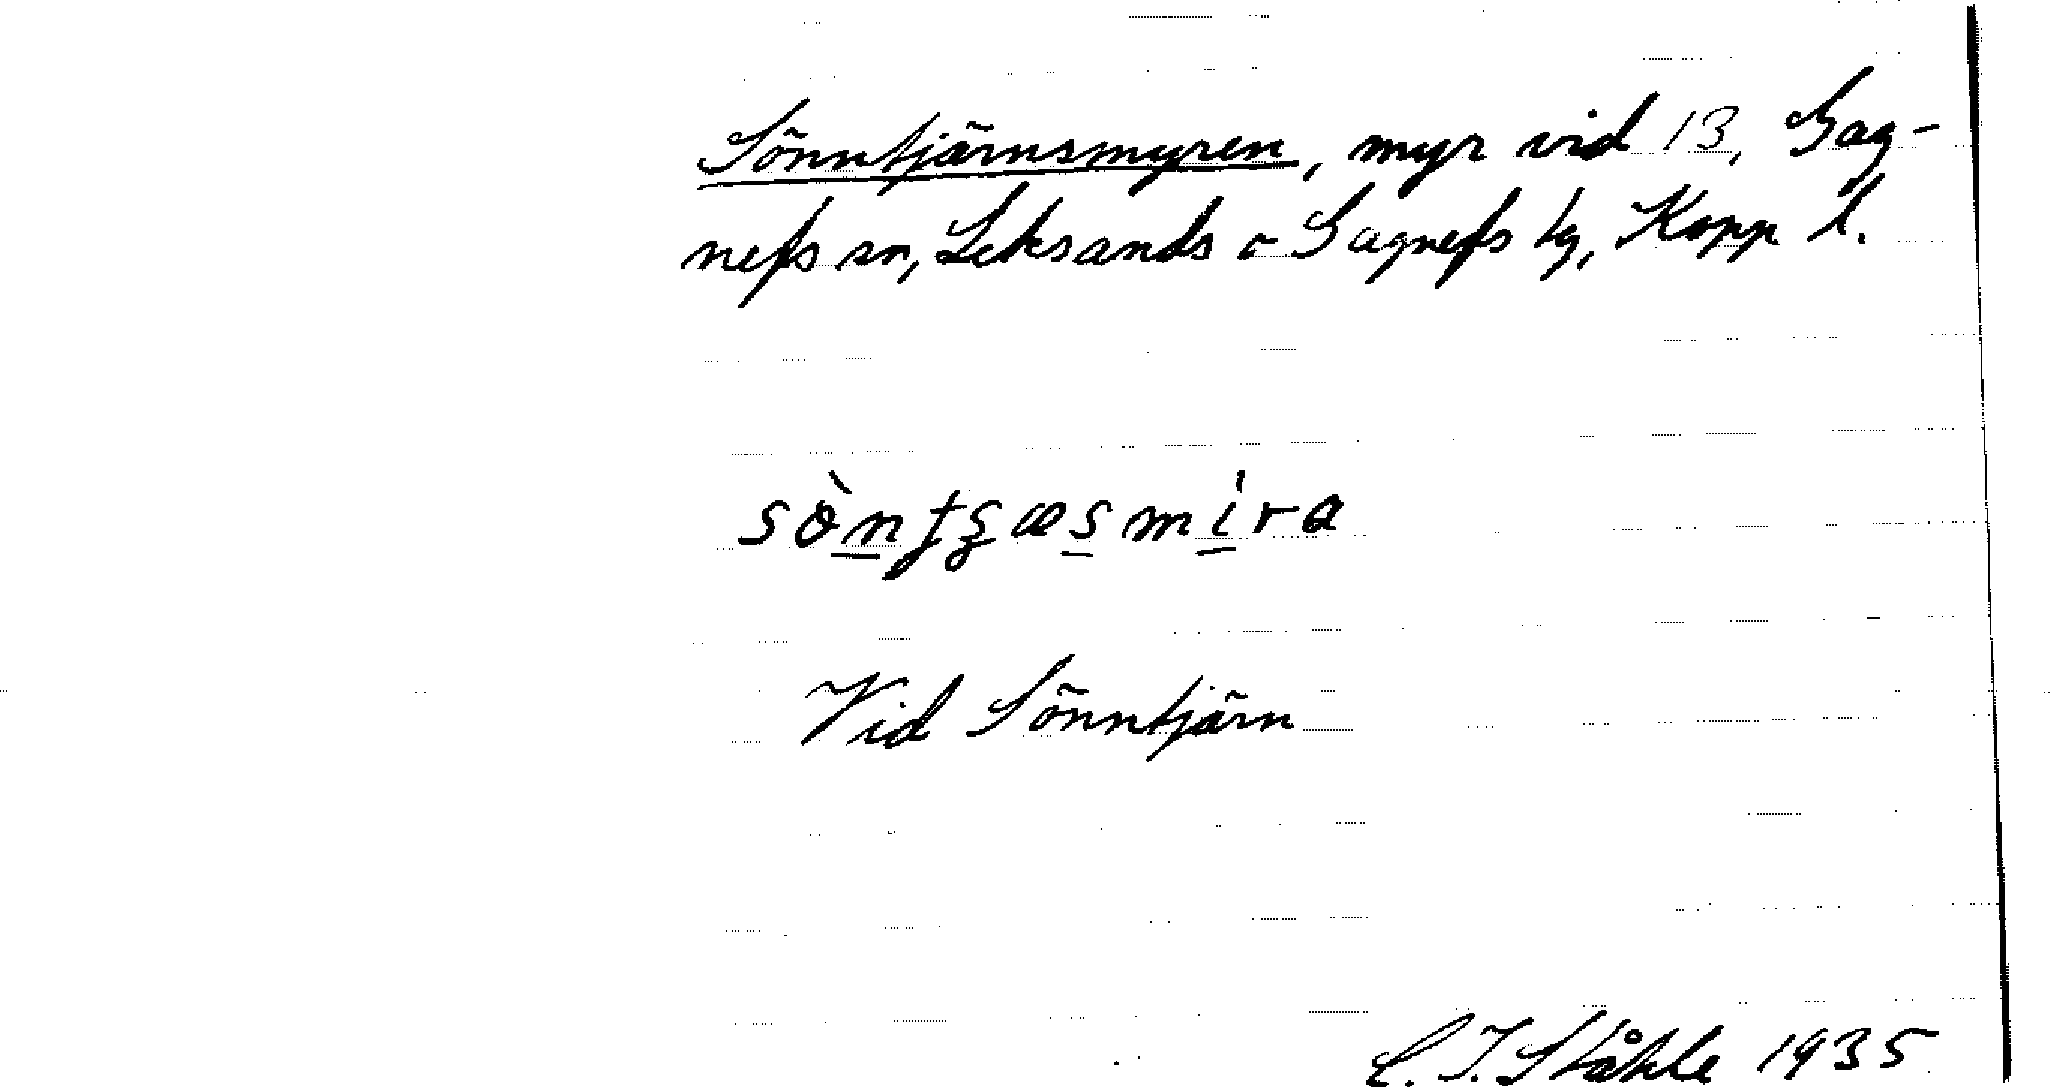 Sönntjärnsmyren, myr vid 13, Gag-
nefs sn, Leksands o Gagnefs tg, Kopp l.
Vid Sönntjärn
C. I. Ståhle 1935